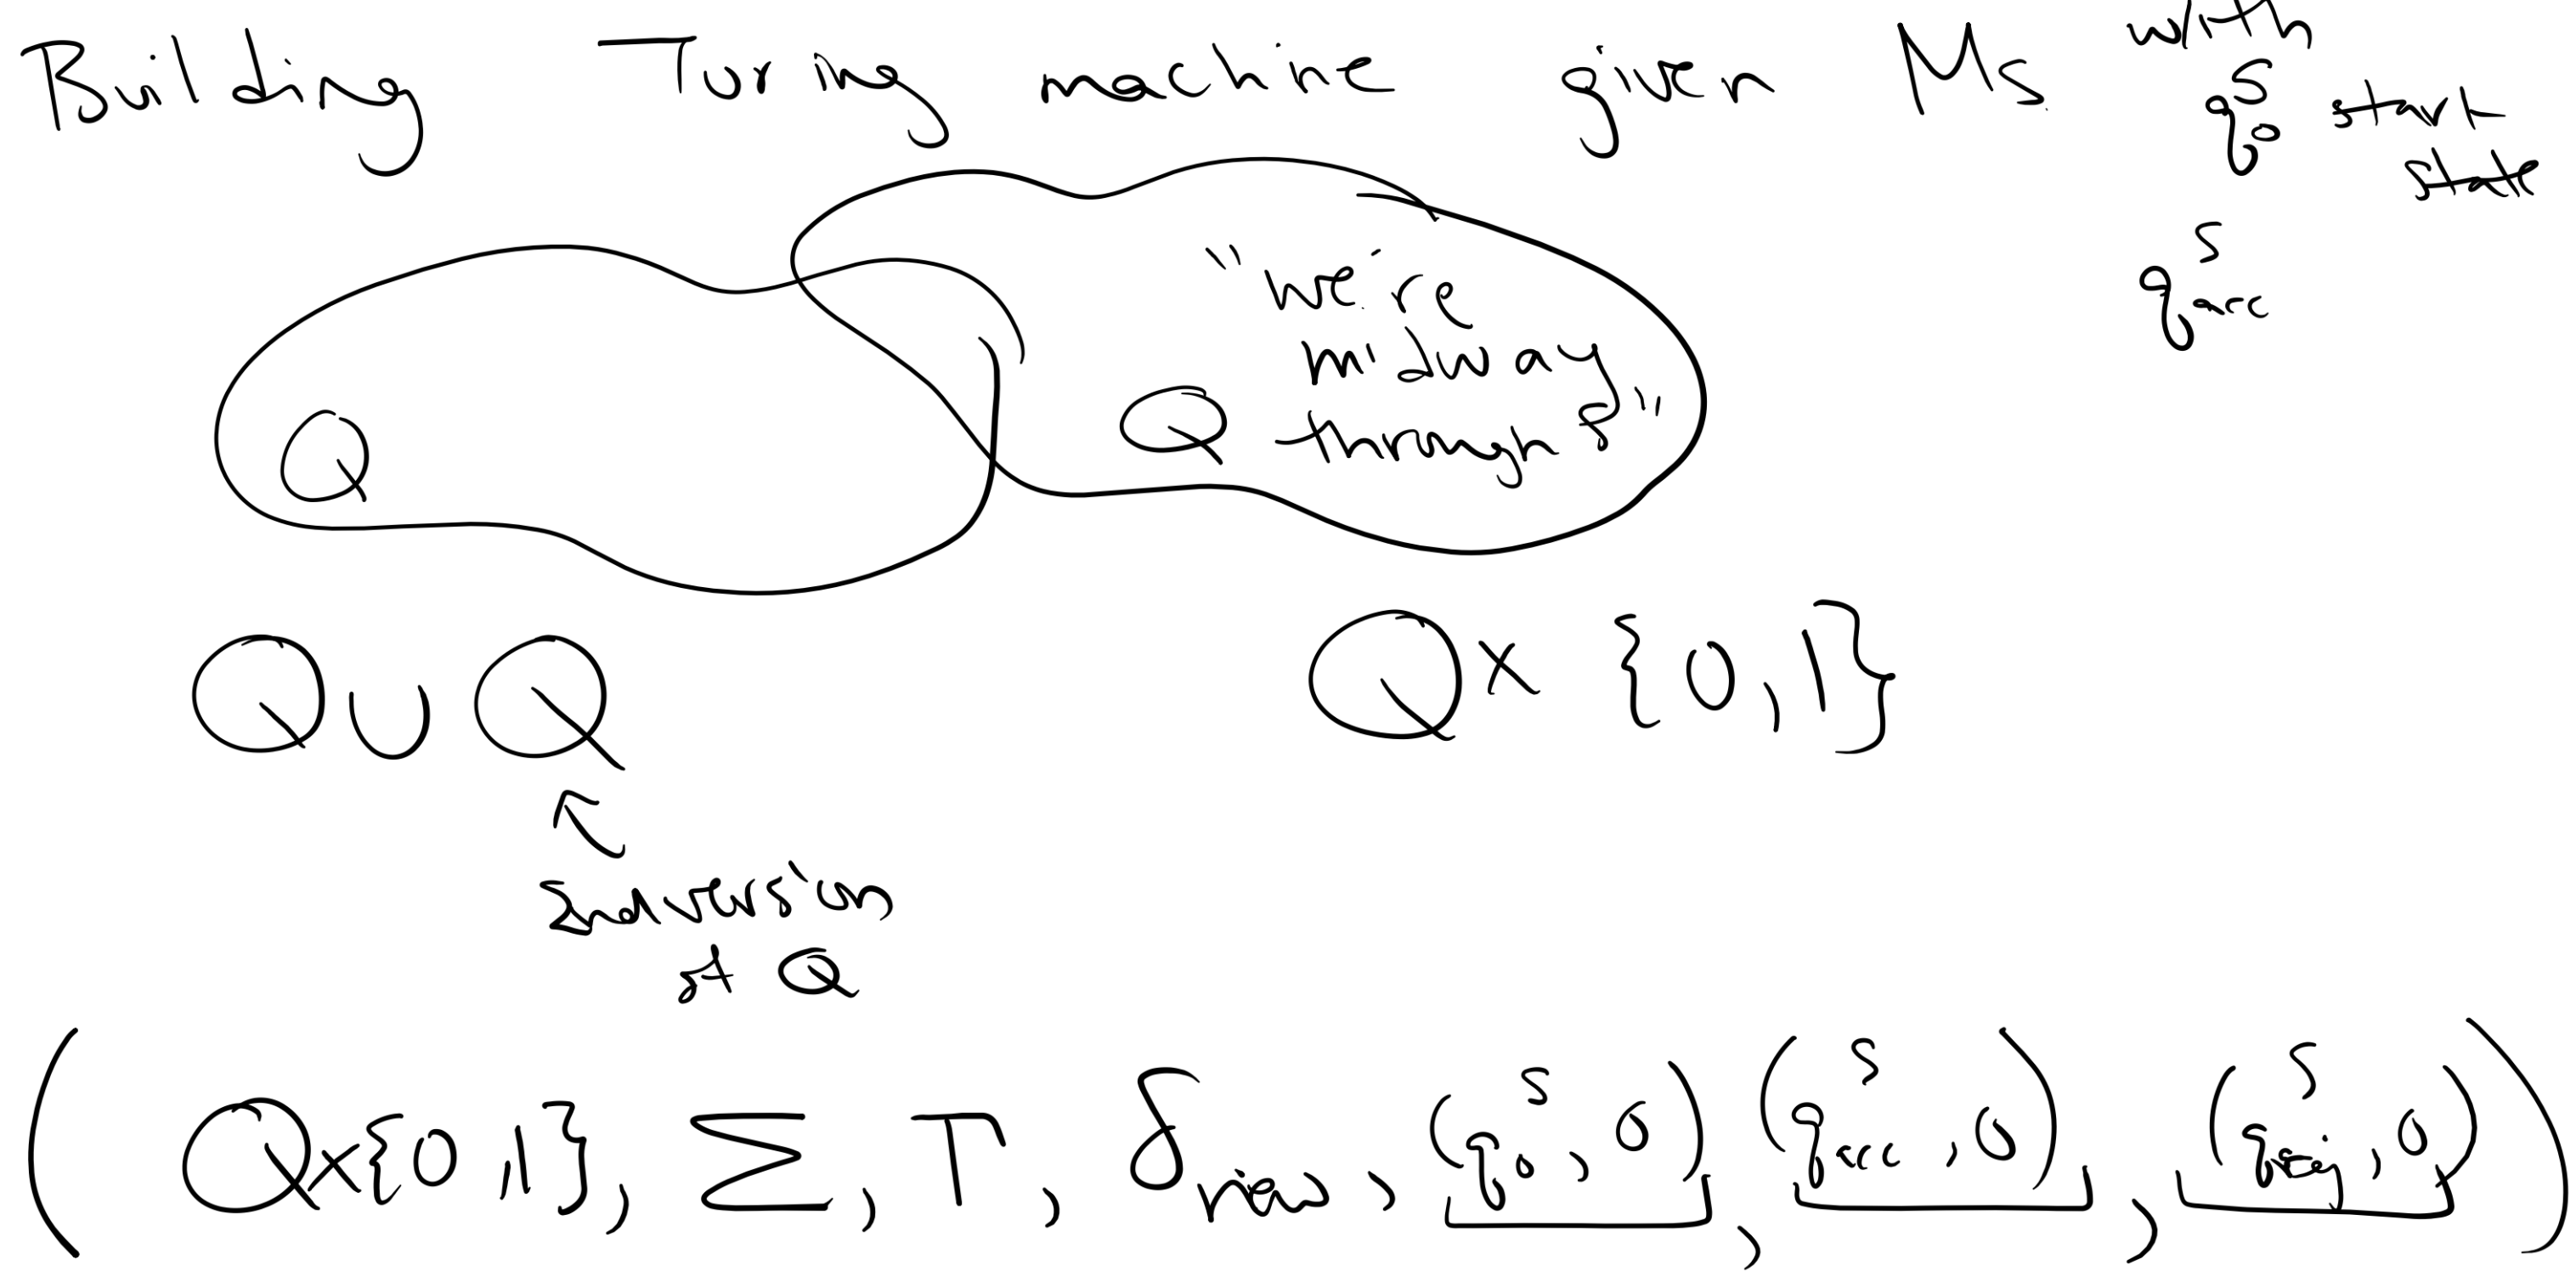 Building Turing machine given Ms with
q₀ˢ start
state
qₐcc ˢ
"we're
midway
through δ"
Q
Q
Q ∪ Q
Q × {0,1}
2nd version
of Q
( Q×{0,1}, Σ, Γ, δnew, (q₀ˢ, 0), (qaccˢ, 0), (qrejˢ, 0) )